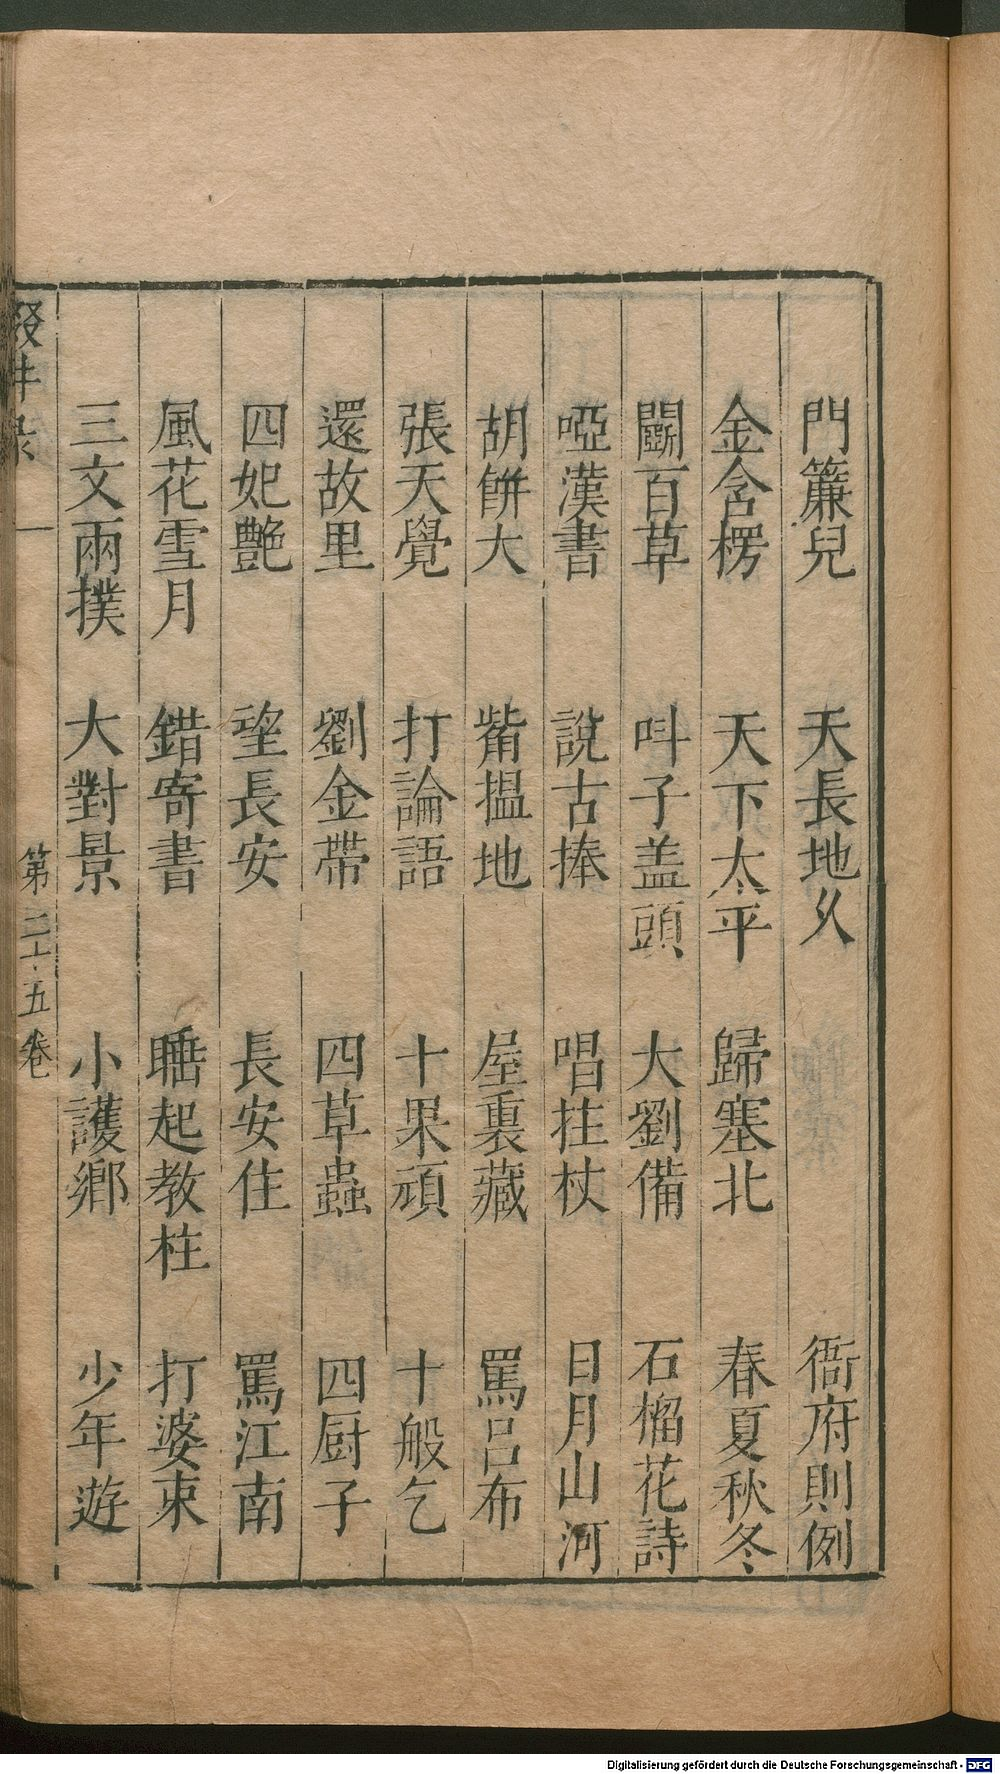 門簾兒　天長地久　衙府則例
金含楞　天下太平　歸塞北　春夏秋冬
鬬百草　叫子盖頭　大劉備　石榴花詩
啞漢書　說古捧　唱拄杖　日月山河
胡餅大　觜揾地　屋裏藏　罵呂布
張天覺　打論語　十果頑　十般乞
還故里　劉金帶　四草蟲　四厨子
四妃艷　望長安　長安住　罵江南
風花雪月　錯寄書　睡起教柱　打婆束
三文兩撲　大對景　小護鄉　少年遊
輟耕录　第二十五卷
Digitalisierung gefördert durch die Deutsche Forschungsgemeinschaft - DFG